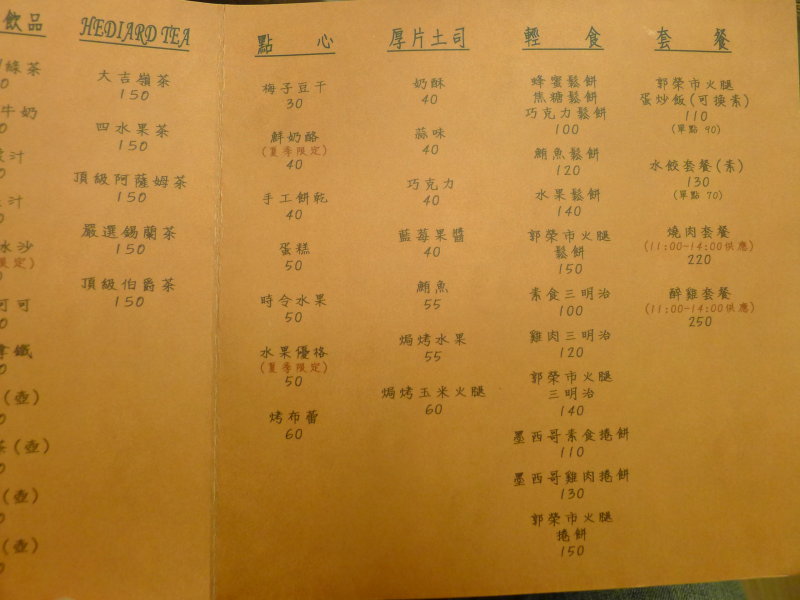 飲品
綠茶
牛奶
汁
汁
冰沙
可可
拿鐵
(壺)
茶(壺)
(壺)
(壺)
HEDIARD TEA
大吉嶺茶
150
四水果茶
150
頂級阿薩姆茶
150
嚴選錫蘭茶
150
頂級伯爵茶
150
點心
梅子豆干
30
鮮奶酪
(夏季限定)
40
手工餅乾
40
蛋糕
50
時令水果
50
水果優格
(夏季限定)
50
烤布蕾
60
厚片土司
奶酥
40
蒜味
40
巧克力
40
藍莓果醬
40
鮪魚
55
焗烤水果
55
焗烤玉米火腿
60
輕食
蜂蜜鬆餅
焦糖鬆餅
巧克力鬆餅
100
鮪魚鬆餅
120
水果鬆餅
140
郭榮市火腿
鬆餅
150
素食三明治
100
雞肉三明治
120
郭榮市火腿
三明治
140
墨西哥素食捲餅
110
墨西哥雞肉捲餅
130
郭榮市火腿
捲餅
150
套餐
郭榮市火腿
蛋炒飯(可換素)
110
(單點 90)
水餃套餐(素)
130
(單點 70)
燒肉套餐
(11:00-14:00供應)
220
醉雞套餐
(11:00-14:00供應)
250